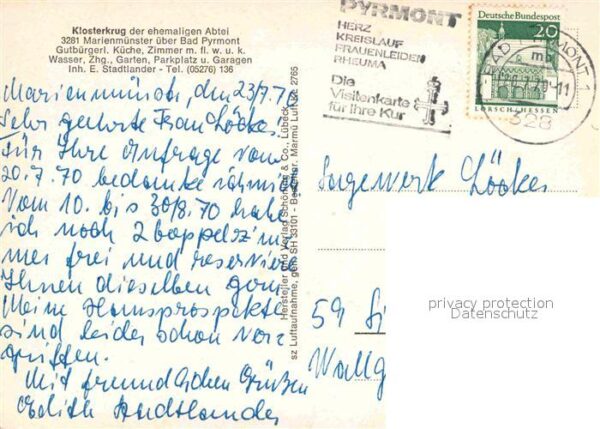 Klosterkrug der ehemaligen Abtei
3281 Marienmünster über Bad Pyrmont
Gutbürgerl. Küche, Zimmer m. fl. w. u. k.
Wasser, Zhg., Garten, Parkplatz u. Garagen
Inh. E. Stadtlander - Tel. (05276) 136
Marienmünster, den 23/7.70
Sehr geehrte Frau Löökes!
Für Ihre Anfrage vom
20.7.70 bedanke ich mich
Vom 10. bis 30/8.70 habe
ich noch 2 Doppelzim
mer frei und reserviere
Ihnen dieselben gern
Meine Hausprospekte
sind leider schon ver
griffen.
Mit freundlichen Grüßen
Edith Stadtlander
Hersteller und Verlag Schöning & Co., Lübeck
sz Luftaufnahme, gen. SH 33101 - Marmü Luft 2765
PYRMONT
HERZ
KREISLAUF
FRAUENLEIDEN
RHEUMA
Die
Visitenkarte
für Ihre Kur
Deutsche Bundespost
20
LORSCH/HESSEN
328
Sagewerk Löökes
59 Si
Wallg
privacy protection
Datenschutz